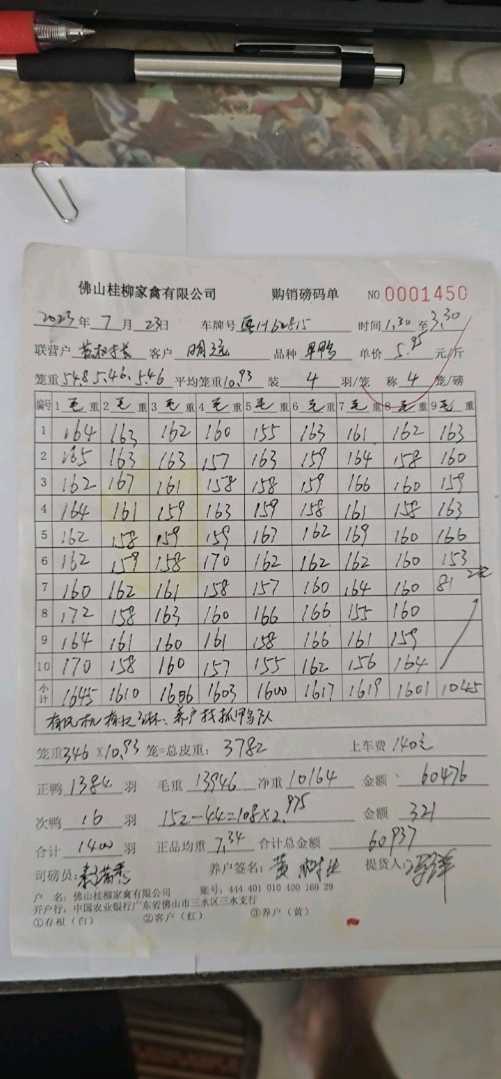 佛山桂柳家禽有限公司 购销磅码单 NO 0001450
2023年 7 月 23日 车牌号 时间 1.30 至 3.30
联营户 客户 明 品种 鸭 单价 5.95 元/斤
笼重 5.48 5.46. 5.46 平均笼重 10.93 装 4 羽/笼 称 4 笼/磅
编号 1 毛 重 2 毛 重 3 毛 重 4 毛 重 5 毛 重 6 毛 重 7 毛 重 8 毛 重 9 毛 重
1 164 163 162 160 155 163 161 162 163
2 165 163 163 157 163 159 164 158 160
3 162 167 161 158 158 159 166 160 159
4 164 161 159 163 159 158 161 158 163
5 162 158 159 159 167 162 169 160 166
6 162 159 158 170 162 162 162 160 153
7 160 162 161 158 157 160 164 160 81
8 172 158 163 160 166 166 155 160
9 164 161 160 161 158 166 161 159
10 170 158 160 157 155 162 156 164
小计 1645 1610 1606 1603 1600 1617 1619 1601 1045
笼重 346 X 10.93 笼=总皮重: 3782 上车费 140元
正鸭 1384 羽 毛重 13946 净重 10164 金额: 60476
次鸭 16 羽 152-44=108X2.975 金额 321
合计 1400 羽 正品均重 7.34 合计总金额 60937
司磅员: 养户签名: 黄 提货人:
户 名: 佛山桂柳家禽有限公司 账号: 444 401 010 400 160 29
开户行: 中国农业银行广东省佛山市三水区三水支行
①存根(白) ②客户(红) ③养户(黄)